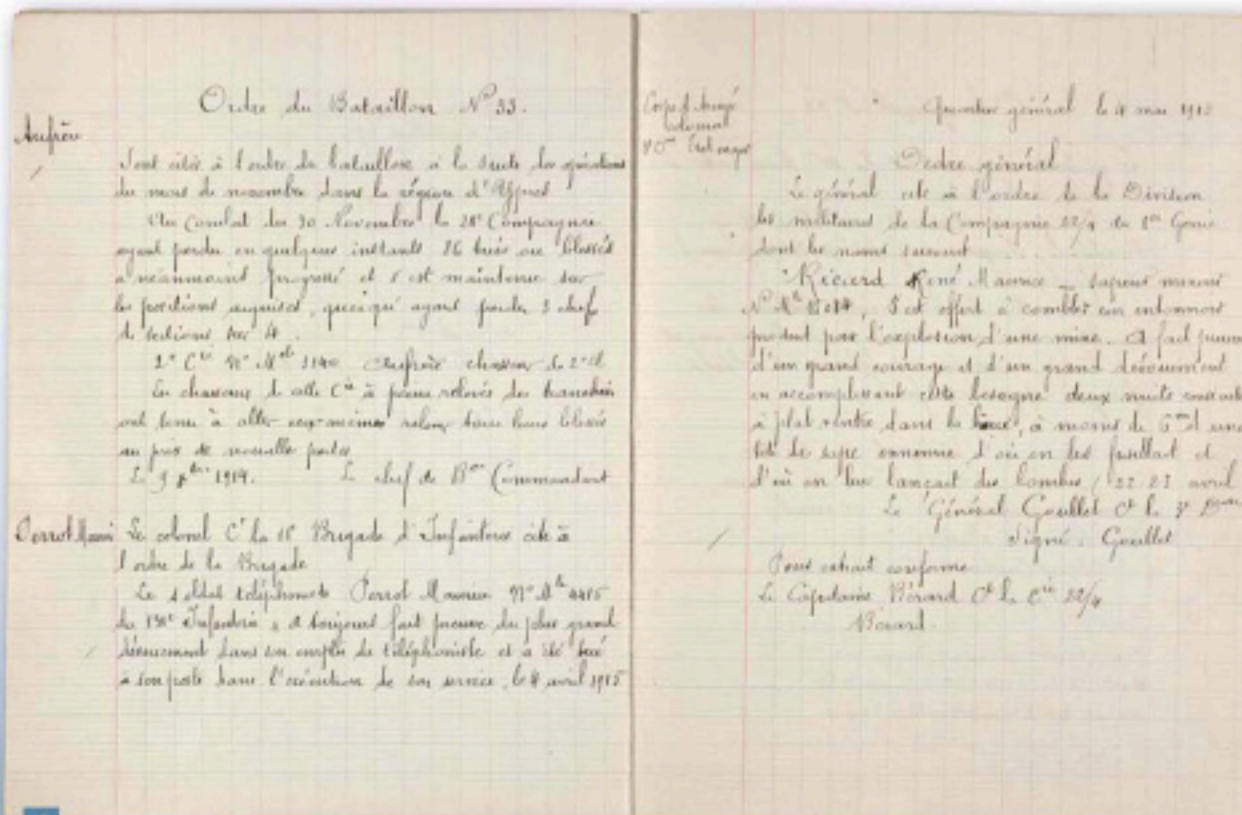 Ordre du Bataillon N° 33.
Sont cités à l'ordre du bataillon à la suite des opérations
du mois de novembre dans la région d'Ypres
Au Combat du 30 Novembre la 28e Compagnie
ayant perdu en quelques instants 26 tués ou blessés
a néanmoins progressé et s'est maintenue sur
les positions acquises, quoiqu'ayant perdu 3 chefs
de sections sur 4.
2e Cie N° Mle chasseur de 2e cl
Les chasseurs de cette Cie à peine relevés des tranchées
ont tenu à aller eux-mêmes relever tous leurs blessés
au prix de nouvelles pertes
Le 9 1914. Le chef de Bon Commandant
Perrot Maurice Le colonel Ct la Brigade d'Infanterie cite à
l'ordre de la Brigade
Le soldat téléphoniste Perrot Maurice N° Mle 4415
du Infanterie, a toujours fait preuve du plus grand
dévouement dans son emploi de téléphoniste et a été tué
à son poste dans l'exécution de son service, le 4 avril 1915
Corps d'Armée
Colonial
Etat major
Quartier général le 4 mai 1915
Ordre général
Le général cite à l'ordre de la Division
les militaires de la Compagnie 22/4 du Génie
dont les noms suivent
René Maurice sapeur mineur
N° Mle S'est offert à combler un entonnoir
produit par l'explosion d'une mine. A fait preuve
d'un grand courage et d'un grand dévouement
en accomplissant cette besogne deux nuits
à plat ventre dans la boue, à moins de 6m d'une
tête de sape ennemie d'où on les fusillait et
d'où on leur lançait des bombes (22 23 avril
Le Général Goullet Ct la 3e
Signé: Goullet
Pour extrait conforme
Le Capitaine Ct la Cie 22/4